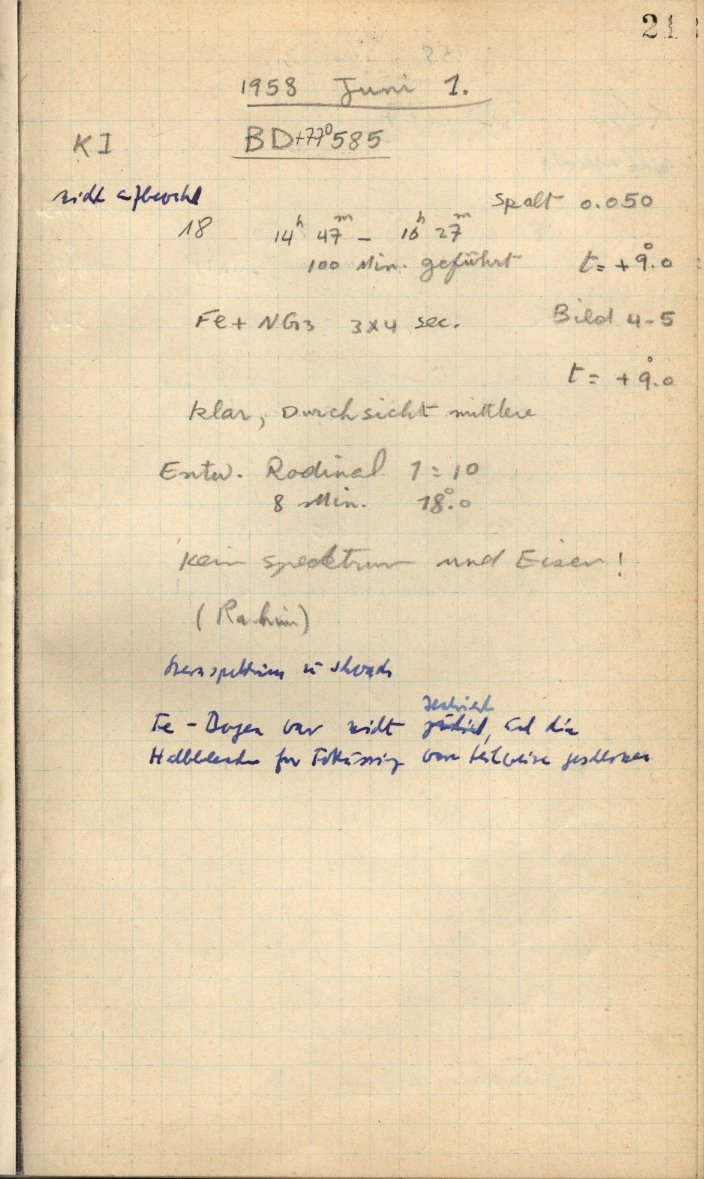 21
1958 Juni 1.
KI BD+77°585
nicht aufbewahrt
Spalt 0.050
18 14ʰ 47ᵐ – 16ʰ 27ᵐ
100 Min. geführt t = +9°.0
Fe + NG3 3x4 sec. Bild 4-5
t = +9°.0
klar, Durchsicht mittlere
Entw. Rodinal 1:10
8 Min. 18°.0
Kein Spektrum und Eisen!
(Rahim)
Sternspektrum zu schwach
Fe-Bogen war nicht zentriert, und die
Halbblende für Fokussierung war teilweise geschlossen